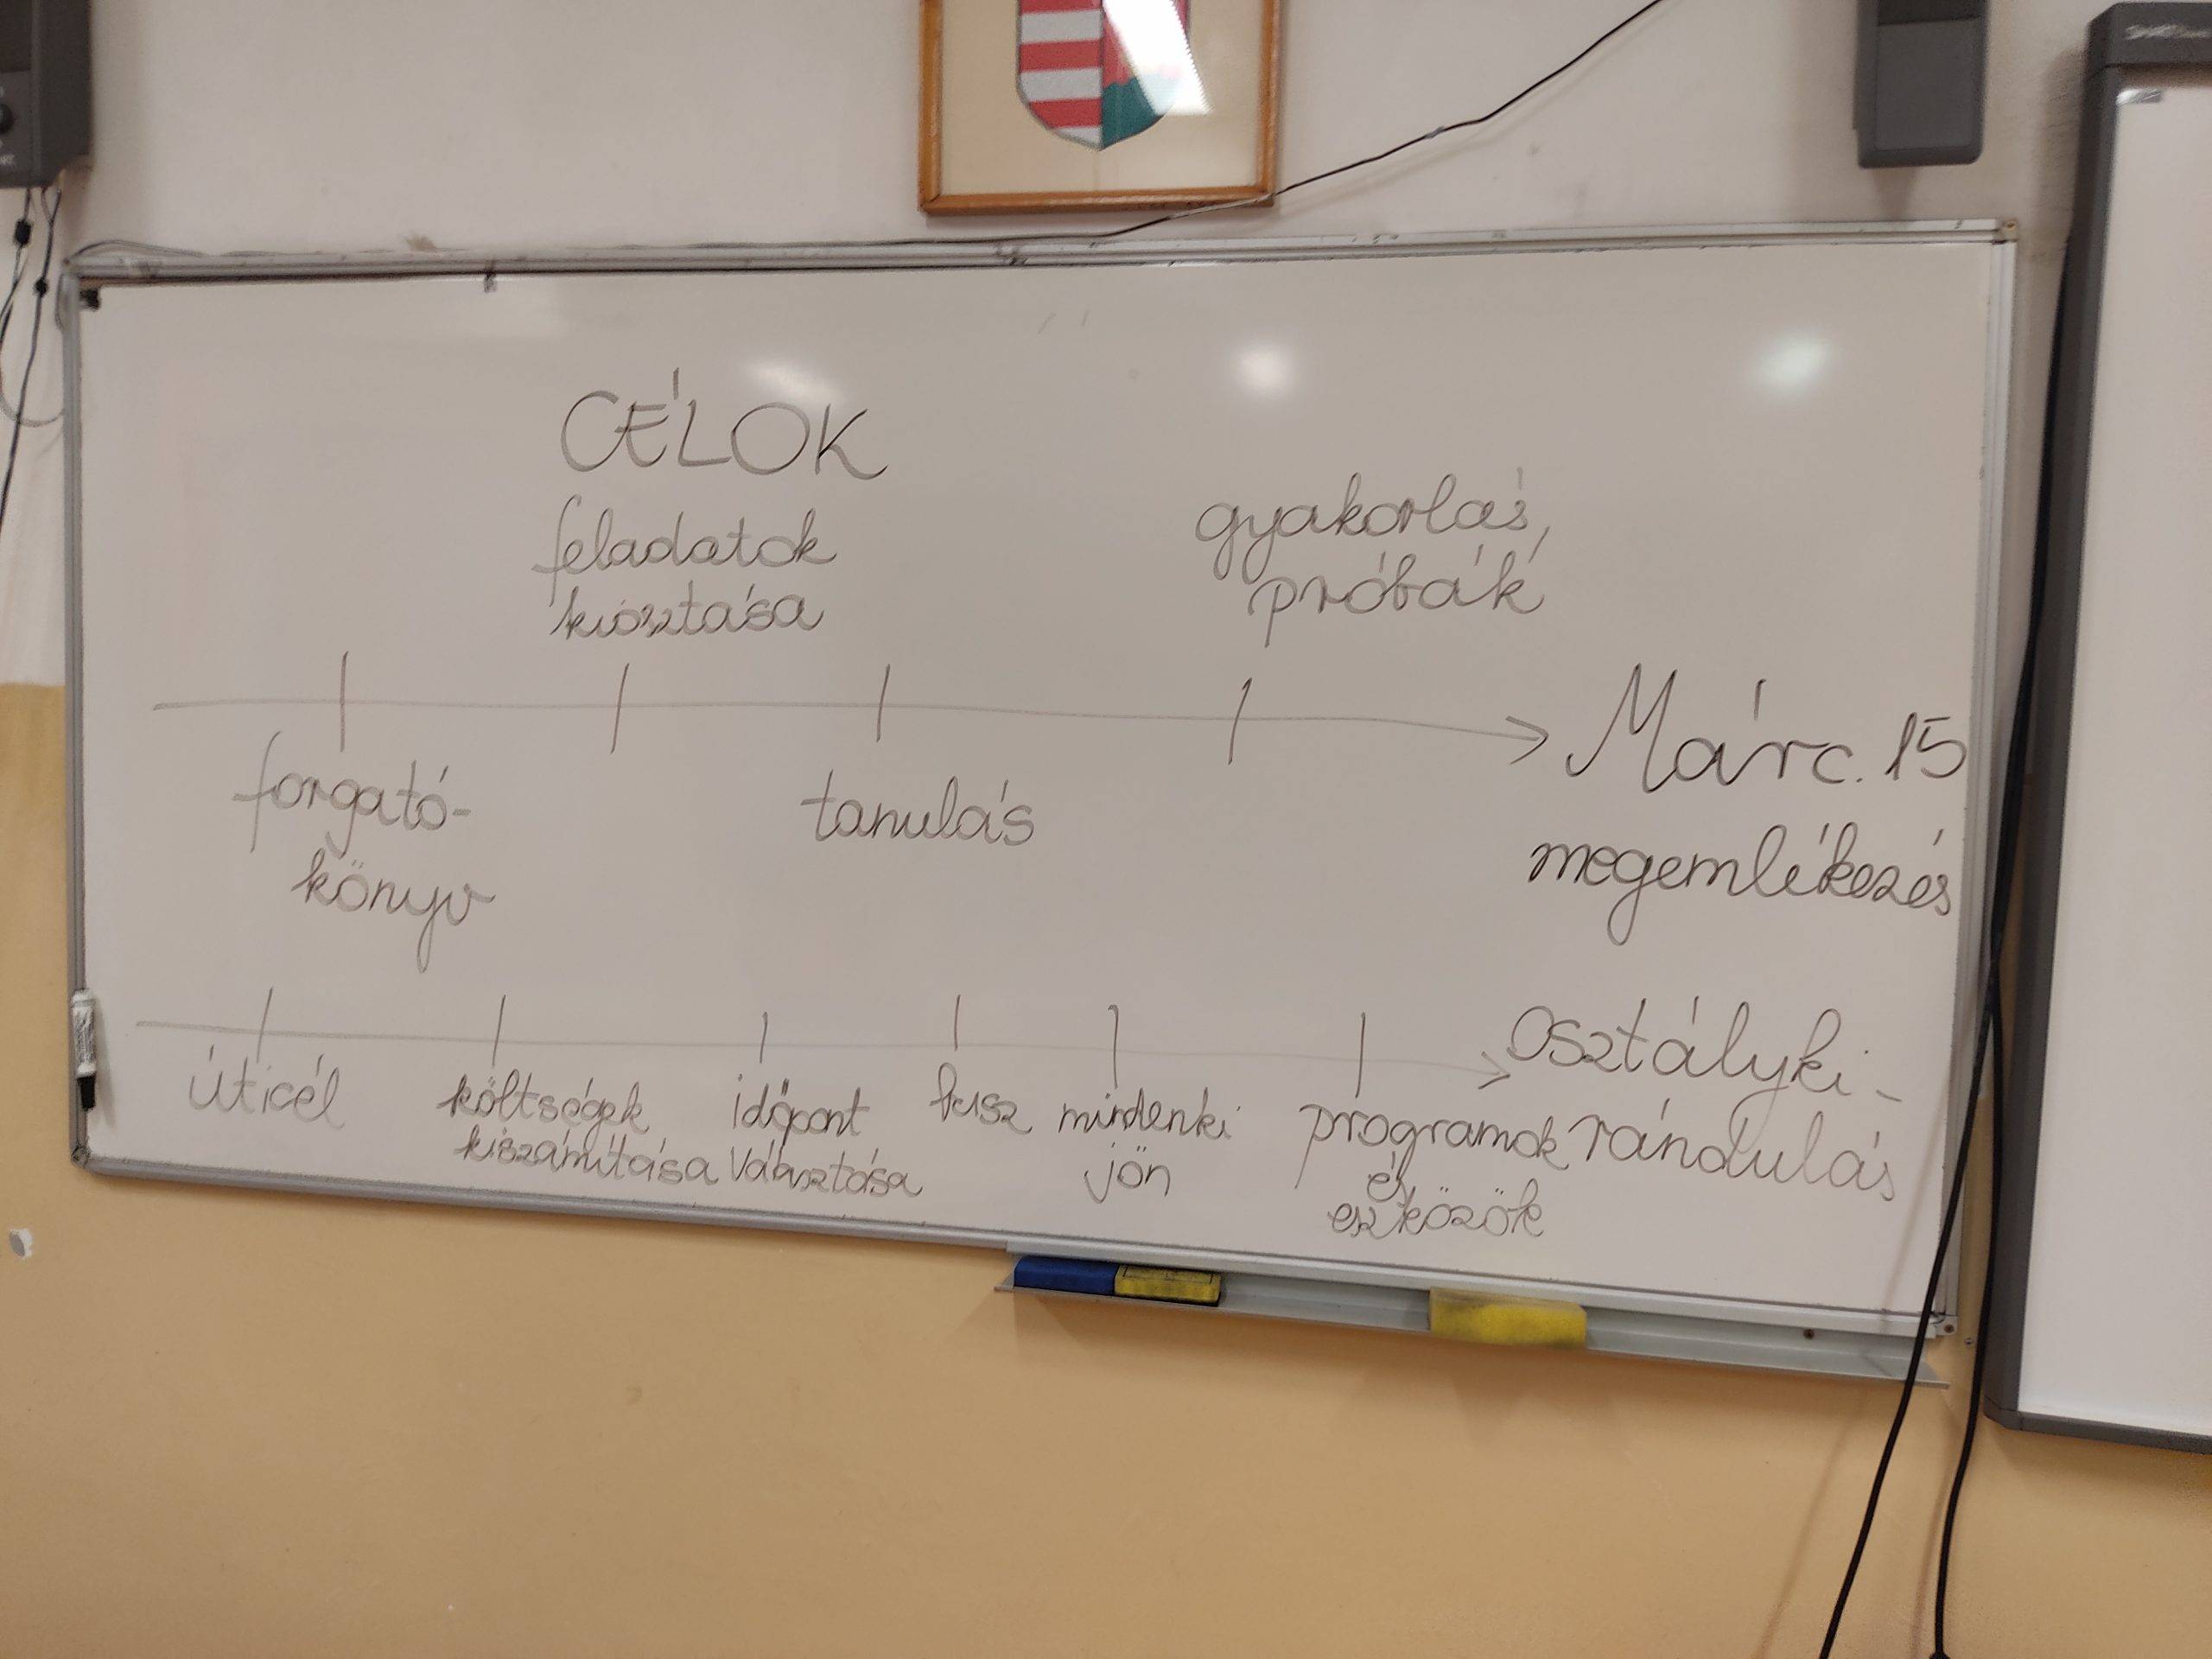 CÉLOK
feladatok
kiosztása
gyakorlás,
próbák
forgató-
könyv
tanulás
Márc. 15
megemlékezés
úticél
költségek
kiszámítása
időpont
választása
busz
mindenki
jön
programok
és
eszközök
Osztályki-
rándulás